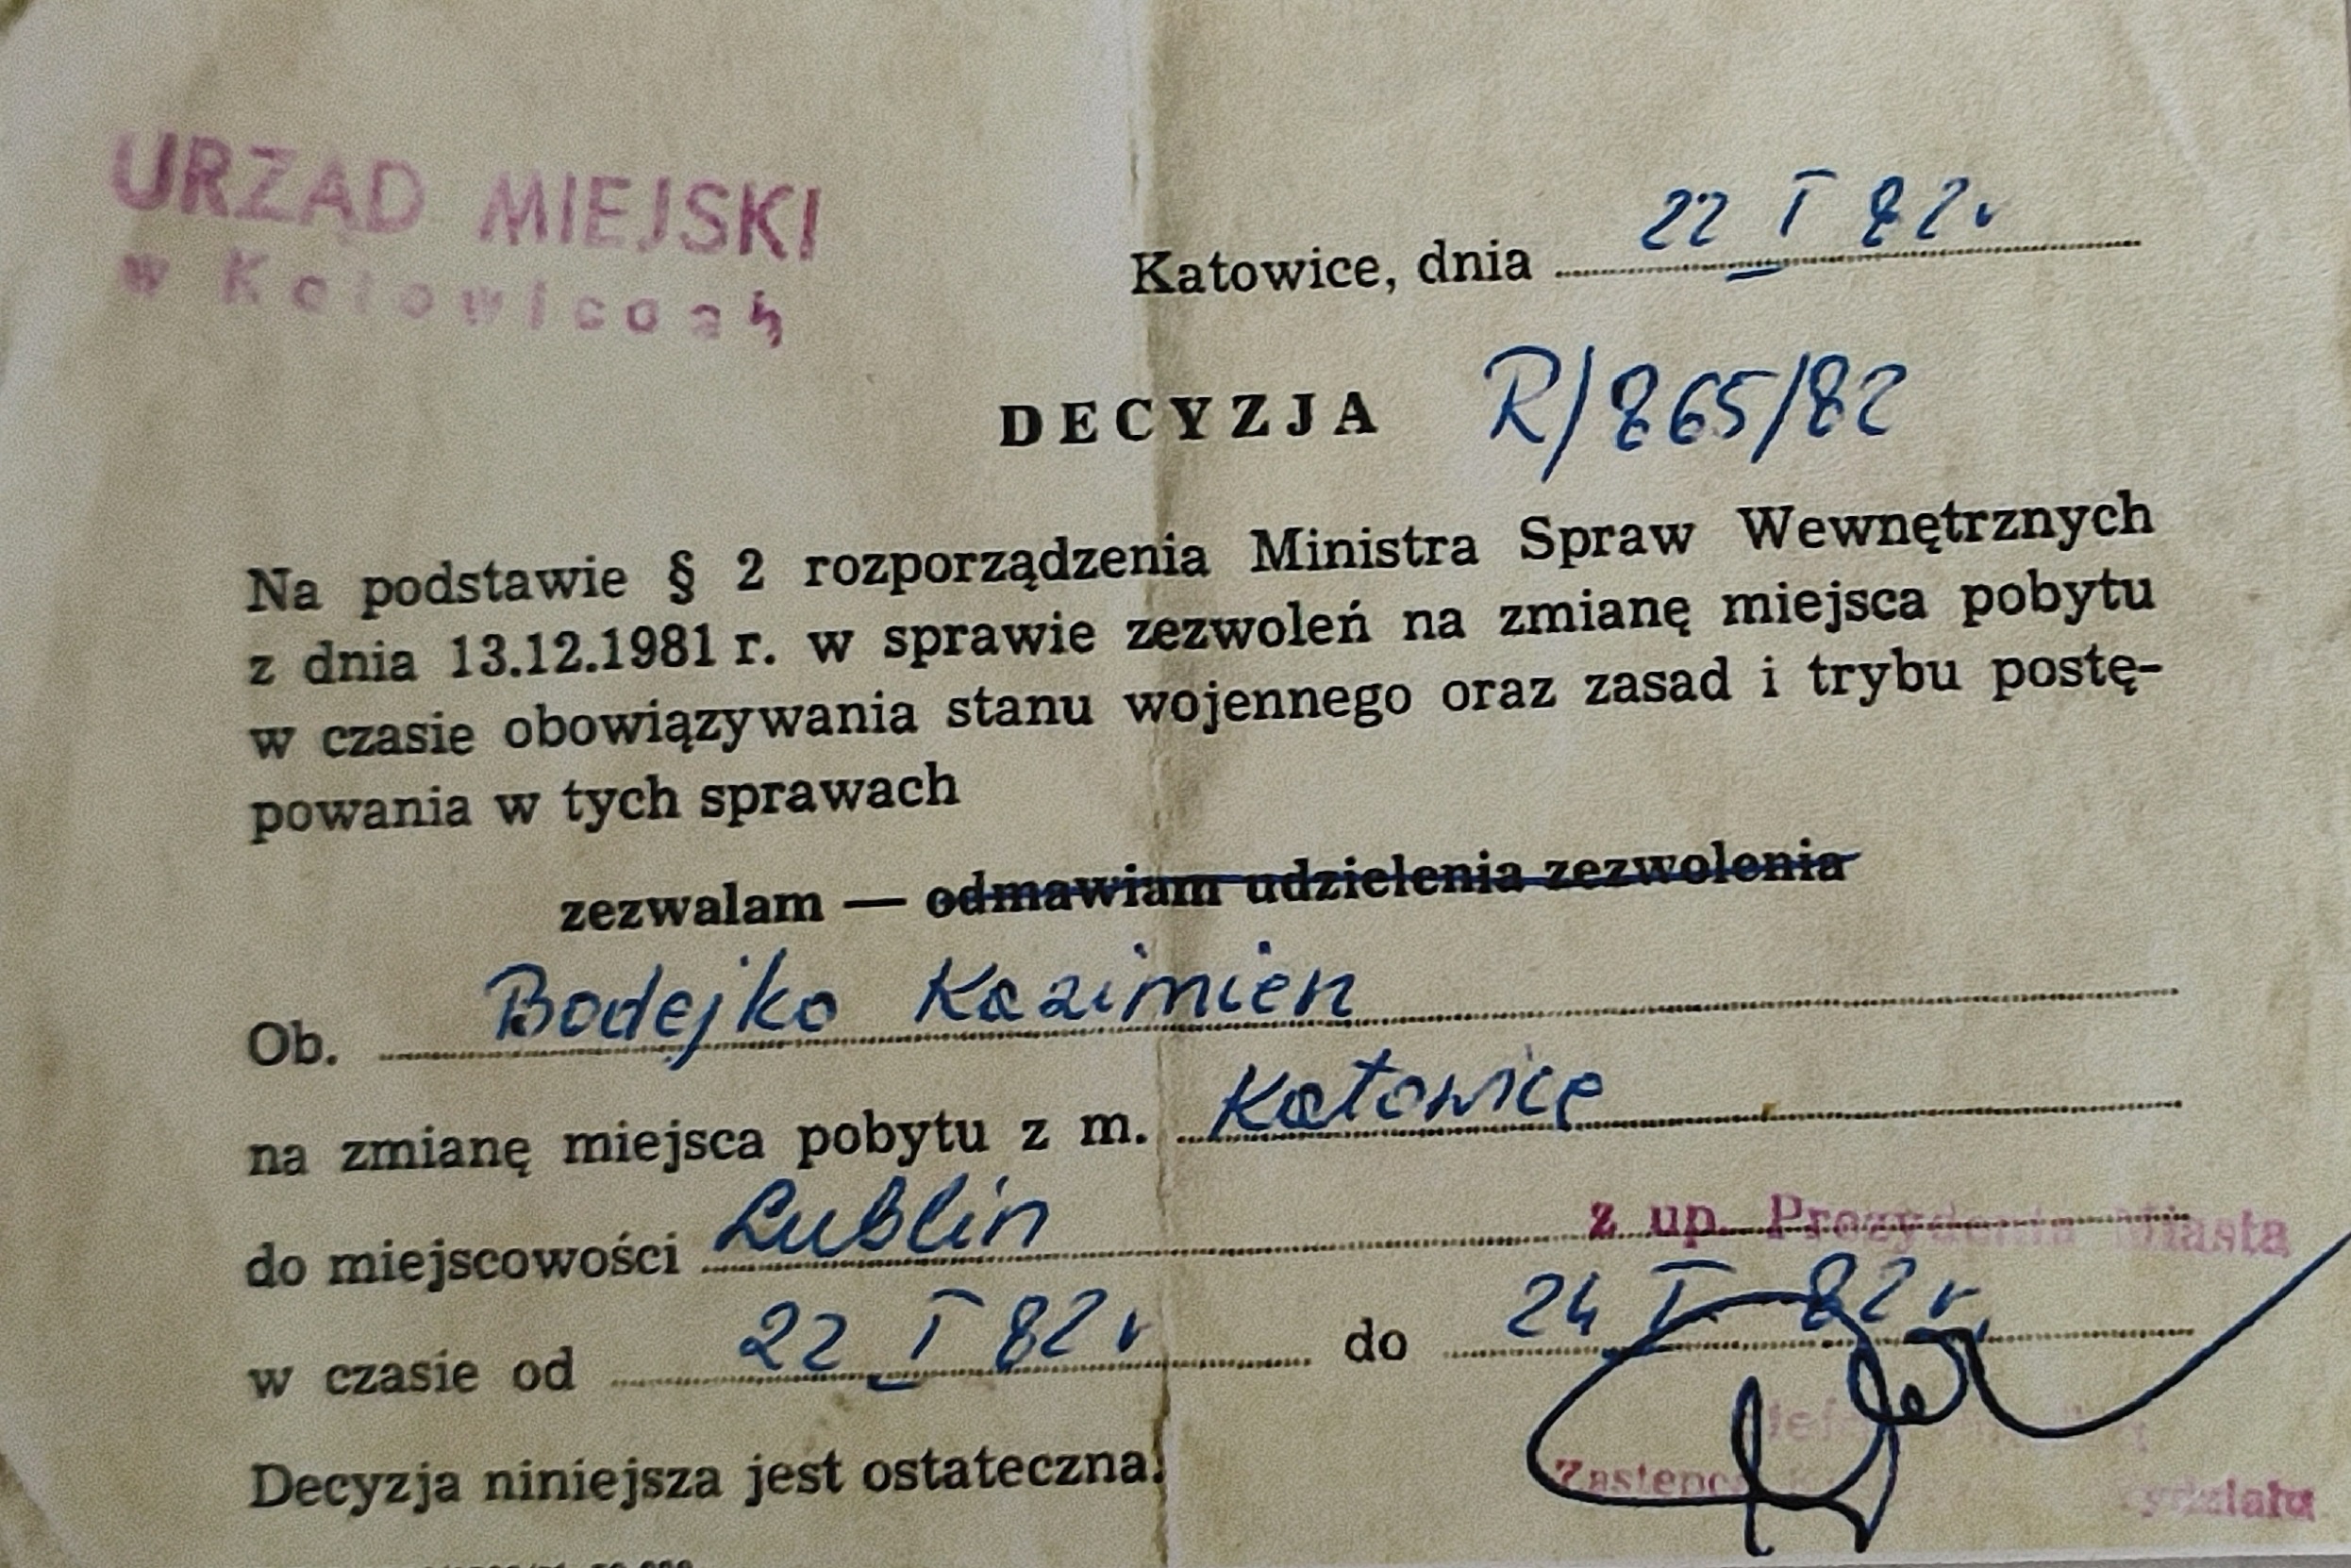 URZĄD MIEJSKI
w Katowicach
Katowice, dnia 22 I 82 r
DECYZJA R/865/82
Na podstawie § 2 rozporządzenia Ministra Spraw Wewnętrznych
z dnia 13.12.1981 r. w sprawie zezwoleń na zmianę miejsca pobytu
w czasie obowiązywania stanu wojennego oraz zasad i trybu postę-
powania w tych sprawach
zezwalam — odmawiam udzielenia zezwolenia
Ob. Bodejko Kazimierz
na zmianę miejsca pobytu z m. Katowice
do miejscowości Lublin
z up. Prezydenta Miasta
w czasie od 22 I 82 r do 24 I 82 r.
Decyzja niniejsza jest ostateczna.